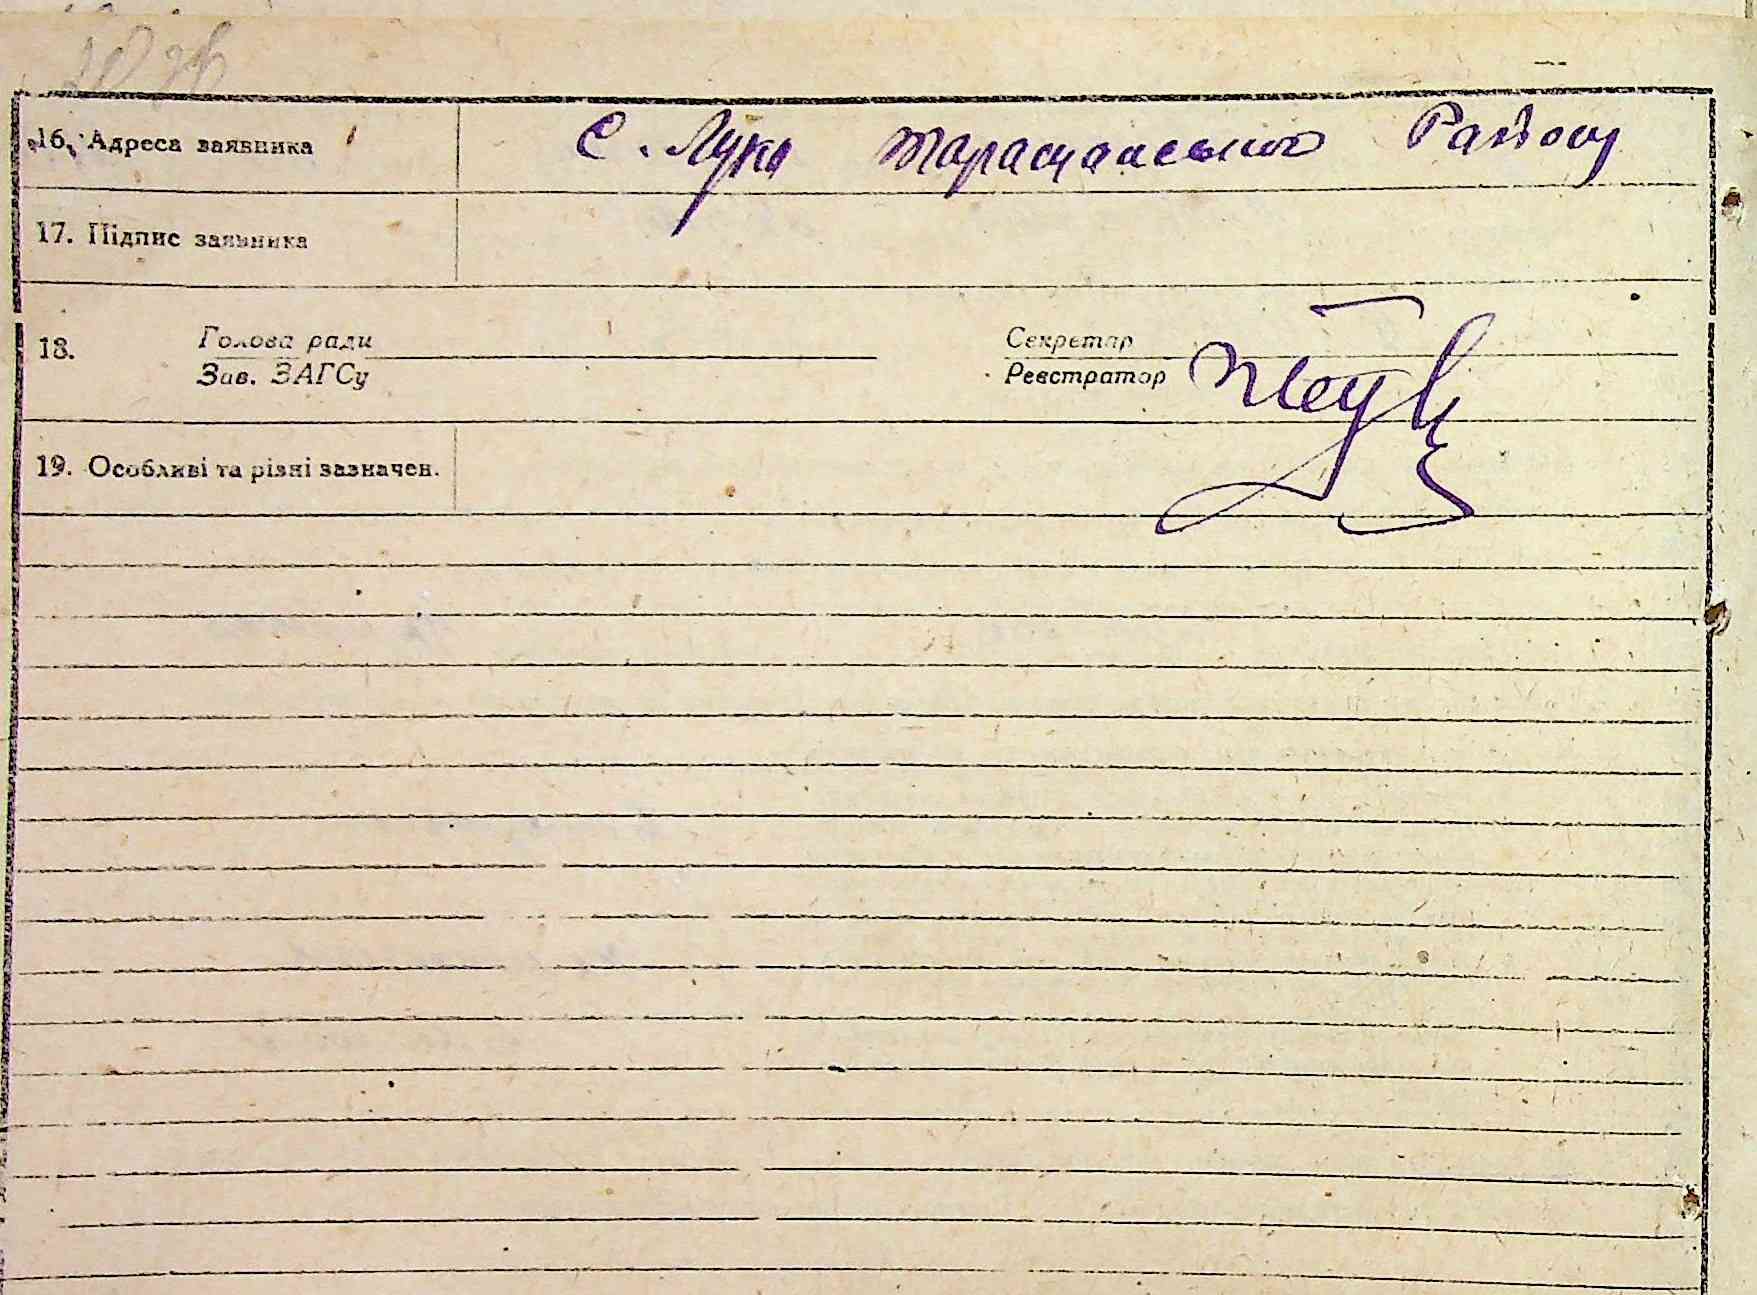 16. Адреса заявника С. Лука Таращанського Району
17. Підпис заявника
18. Голова ради Секретар
Зав. ЗАГСу Реєстратор
19. Особливі та різні зазначен.